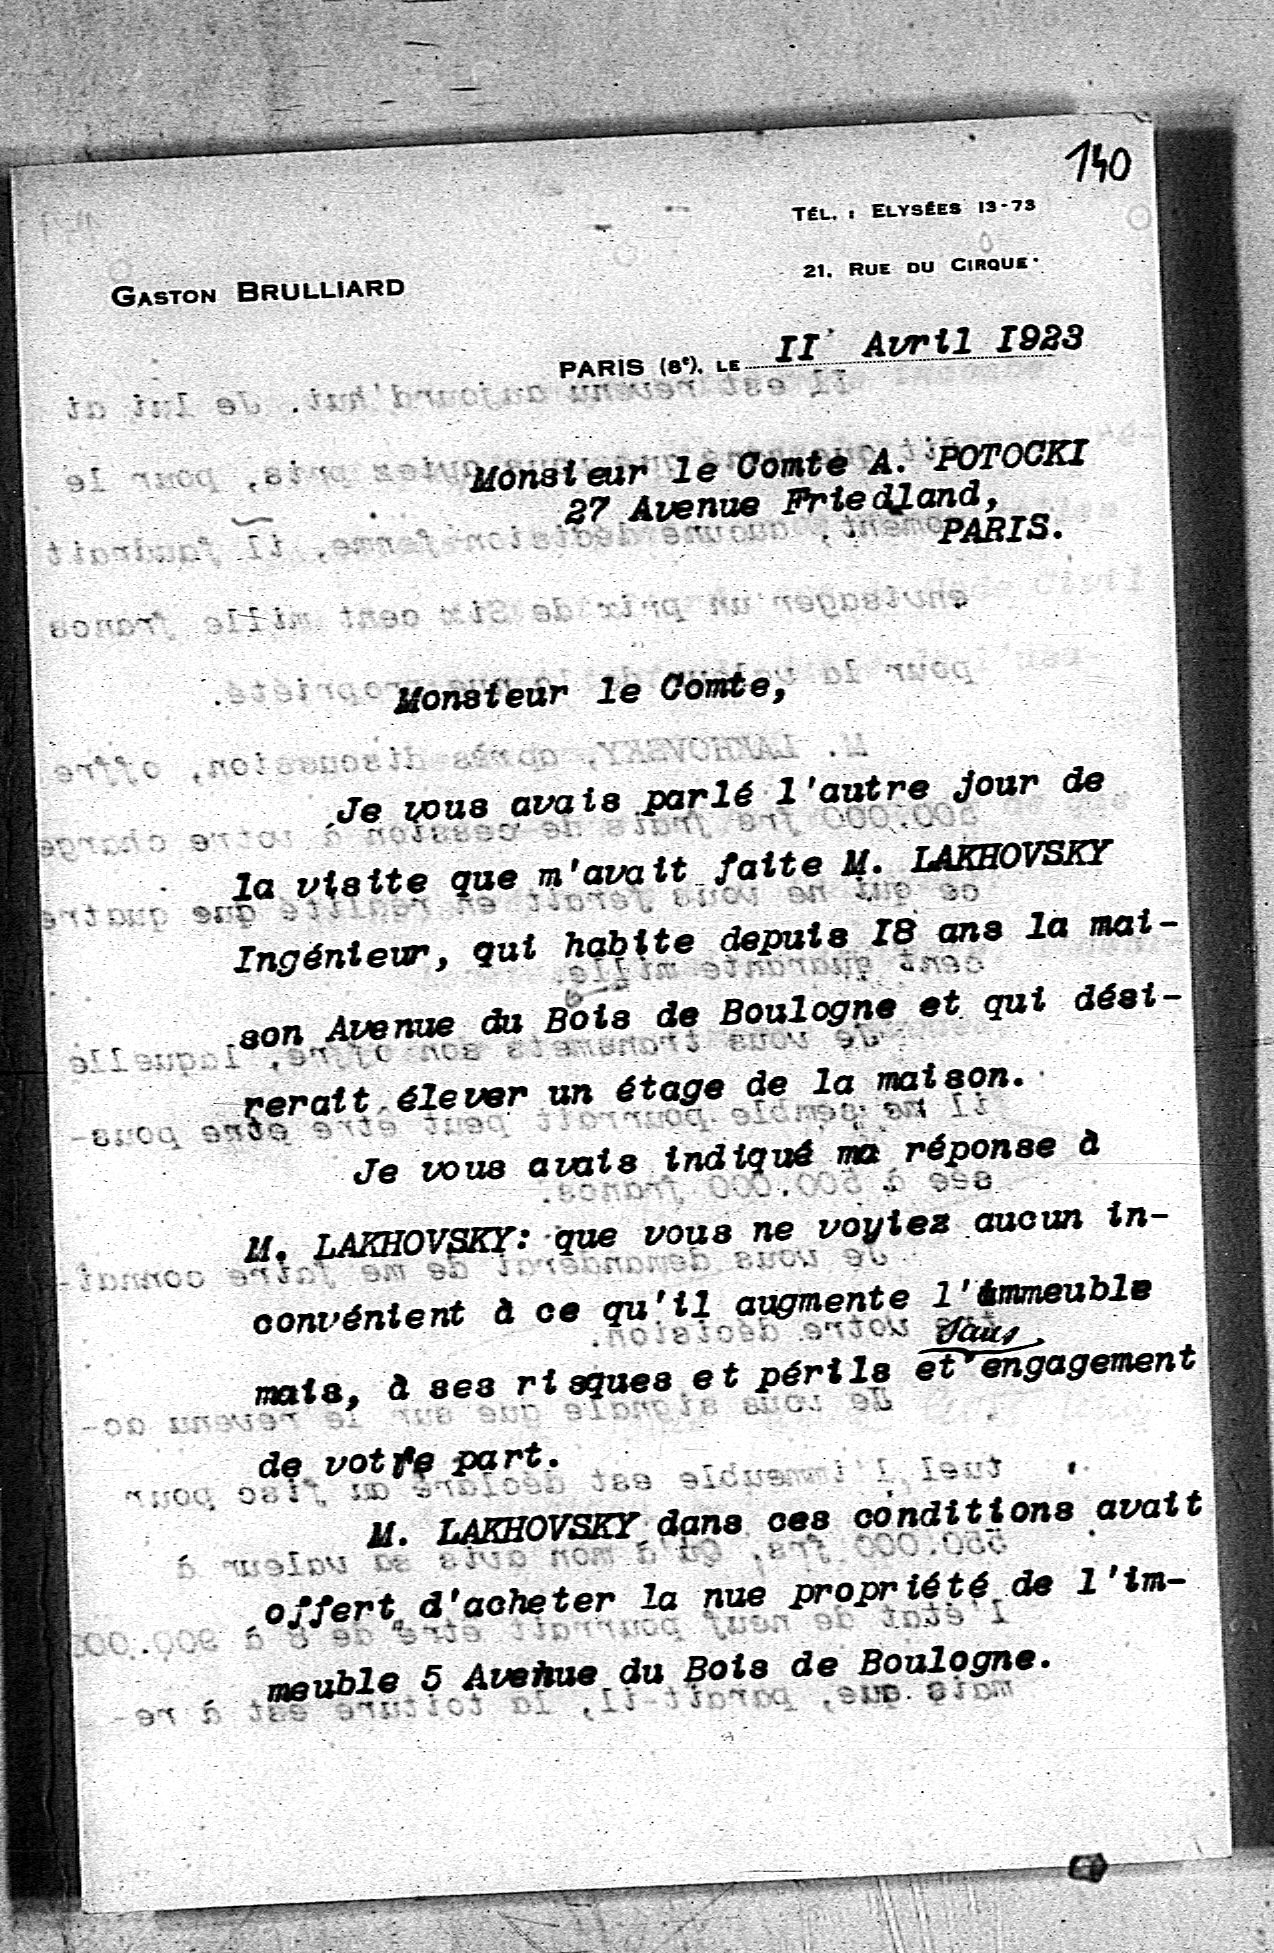 140
TÉL. : ELYSÉES 13-73
21. RUE DU CIRQUE
GASTON BRULLIARD
PARIS (8e). LE II Avril I923
Monsieur le Comte A. POTOCKI
27 Avenue Friedland,
PARIS.
Monsieur le Comte,
Je vous avais parlé l'autre jour de
la visite que m'avait faite M. LAKHOVSKY
Ingénieur, qui habite depuis I8 ans la mai-
son Avenue du Bois de Boulogne et qui dési-
rerait élever un étage de la maison.
Je vous avais indiqué ma réponse à
M. LAKHOVSKY: que vous ne voyiez aucun in-
convénient à ce qu'il augmente l'immeuble
sans
mais, à ses risques et périls et engagement
de votre part.
M. LAKHOVSKY dans ces conditions avait
offert d'acheter la nue propriété de l'im-
meuble 5 Avenue du Bois de Boulogne.